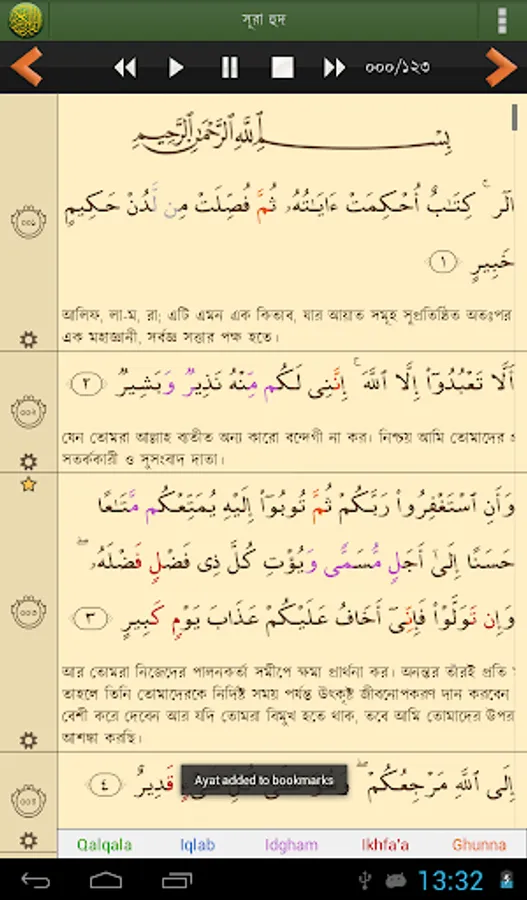 সূরা হুদ
০০০/১২৩
بِسْمِ ٱللَّهِ ٱلرَّحْمَٰنِ ٱلرَّحِيمِ
الٓر ۚ كِتَـٰبٌ أُحْكِمَتْ ءَايَـٰتُهُۥ ثُمَّ فُصِّلَتْ مِن لَّدُنْ حَكِيمٍ
خَبِيرٍ ١
০০১
আলিফ, লা-ম, রা; এটি এমন এক কিতাব, যার আয়াত সমূহ সুপ্রতিষ্ঠিত অতঃপর
এক মহাজ্ঞানী, সর্বজ্ঞ সত্তার পক্ষ হতে।
أَلَّا تَعْبُدُوٓا۟ إِلَّا ٱللَّهَ ۚ إِنَّنِى لَكُم مِّنْهُ نَذِيرٌ وَبَشِيرٌ ٢
০০২
যেন তোমরা আল্লাহ ব্যতীত অন্য কারো বন্দেগী না কর। নিশ্চয় আমি তোমাদের
সতর্ককারী ও সুসংবাদ দাতা।
وَأَنِ ٱسْتَغْفِرُوا۟ رَبَّكُمْ ثُمَّ تُوبُوٓا۟ إِلَيْهِ يُمَتِّعْكُم مَّتَـٰعًا
حَسَنًا إِلَىٰٓ أَجَلٍ مُّسَمًّى وَيُؤْتِ كُلَّ ذِى فَضْلٍ فَضْلَهُۥ ۖ
وَإِن تَوَلَّوْا۟ فَإِنِّىٓ أَخَافُ عَلَيْكُمْ عَذَابَ يَوْمٍ كَبِيرٍ ٣
০০৩
আর তোমরা নিজেদের পালনকর্তা সমীপে ক্ষমা প্রার্থনা কর। অনন্তর তাঁরই প্রতি
তাহলে তিনি তোমাদেরকে নির্দিষ্ট সময় পর্যন্ত উৎকৃষ্ট জীবনোপকরণ দান করবেন
বেশী করে দেবেন আর যদি তোমরা বিমুখ হতে থাক, তবে আমি তোমাদের উপর
আশঙ্কা করছি।
إِلَى ٱللَّهِ مَرْجِعُكُمْ ۖ قَدِيرٌ ٤
০০৪
Ayat added to bookmarks
Qalqala Iqlab Idgham Ikhfa'a Ghunna
13:32